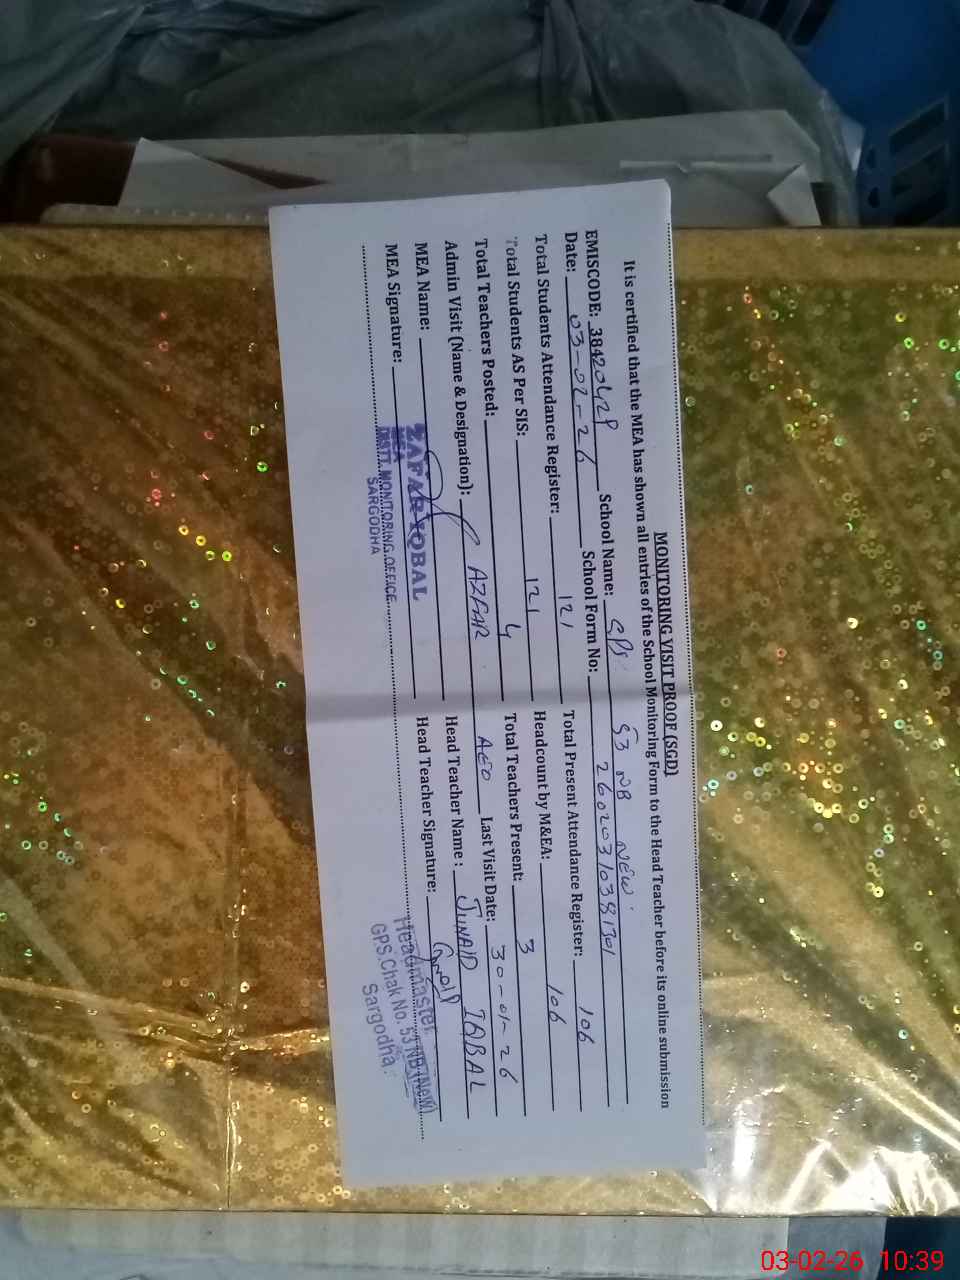 MONITORING VISIT PROOF (SGD)
It is certified that the MEA has shown all entries of the School Monitoring Form to the Head Teacher before its online submission
EMISCODE: 38420428 School Name: GPS 53 NB New.
Date: 03-02-26 School Form No: 26020310381301
Total Students Attendance Register: 121 Total Present Attendance Register: 106
Total Students AS Per SIS: 121 Headcount by M&EA: 106
Total Teachers Posted: 4 Total Teachers Present: 3
Admin Visit (Name & Designation): AZFAR AEO Last Visit Date: 30-01-26
MEA Name: Head Teacher Name : JUNAID IQBAL
MEA Signature: Head Teacher Signature:
ZAFAR IQBAL
MEA
DISTT. MONITORING OFFICE
SARGODHA
Headmaster
GPS.Chak No. 53 NB (New)
Sargodha.
03-02-26 10:39